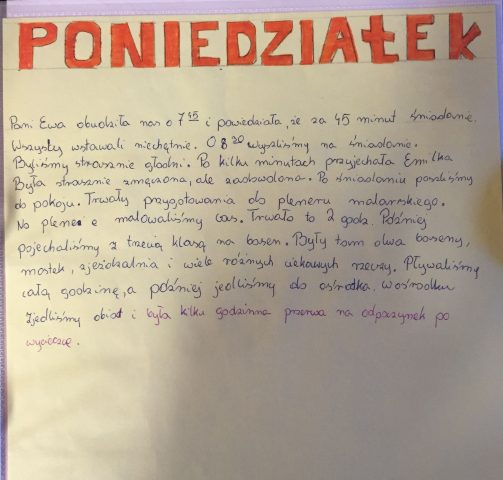 PONIEDZIAŁEK
Pani Ewa obudziła nas o 7 45 i powiedziała, że za 45 minut śniadanie.
Wszyscy wstawali niechętnie. O 8 20 wyszliśmy na śniadanie.
Byliśmy strasznie głodni. Po kilku minutach przyjechała Emilka
Była strasznie zmęczona, ale zadowolona. Po śniadaniu poszliśmy
do pokoju. Trwały przygotowania do pleneru malarskiego.
Na plener e malowaliśmy las. Trwało to 2 godz. Później
pojechaliśmy z trzecią klasą na basen. Były tam dwa baseny,
mostek, zjeżdżalnia i wiele różnych ciekawych rzeczy. Pływaliśmy
całą godzinę, a później jedliśmy do ośrodka. W ośrodku
zjedliśmy obiad i była kilku godzinna przerwa na odpoczynek po